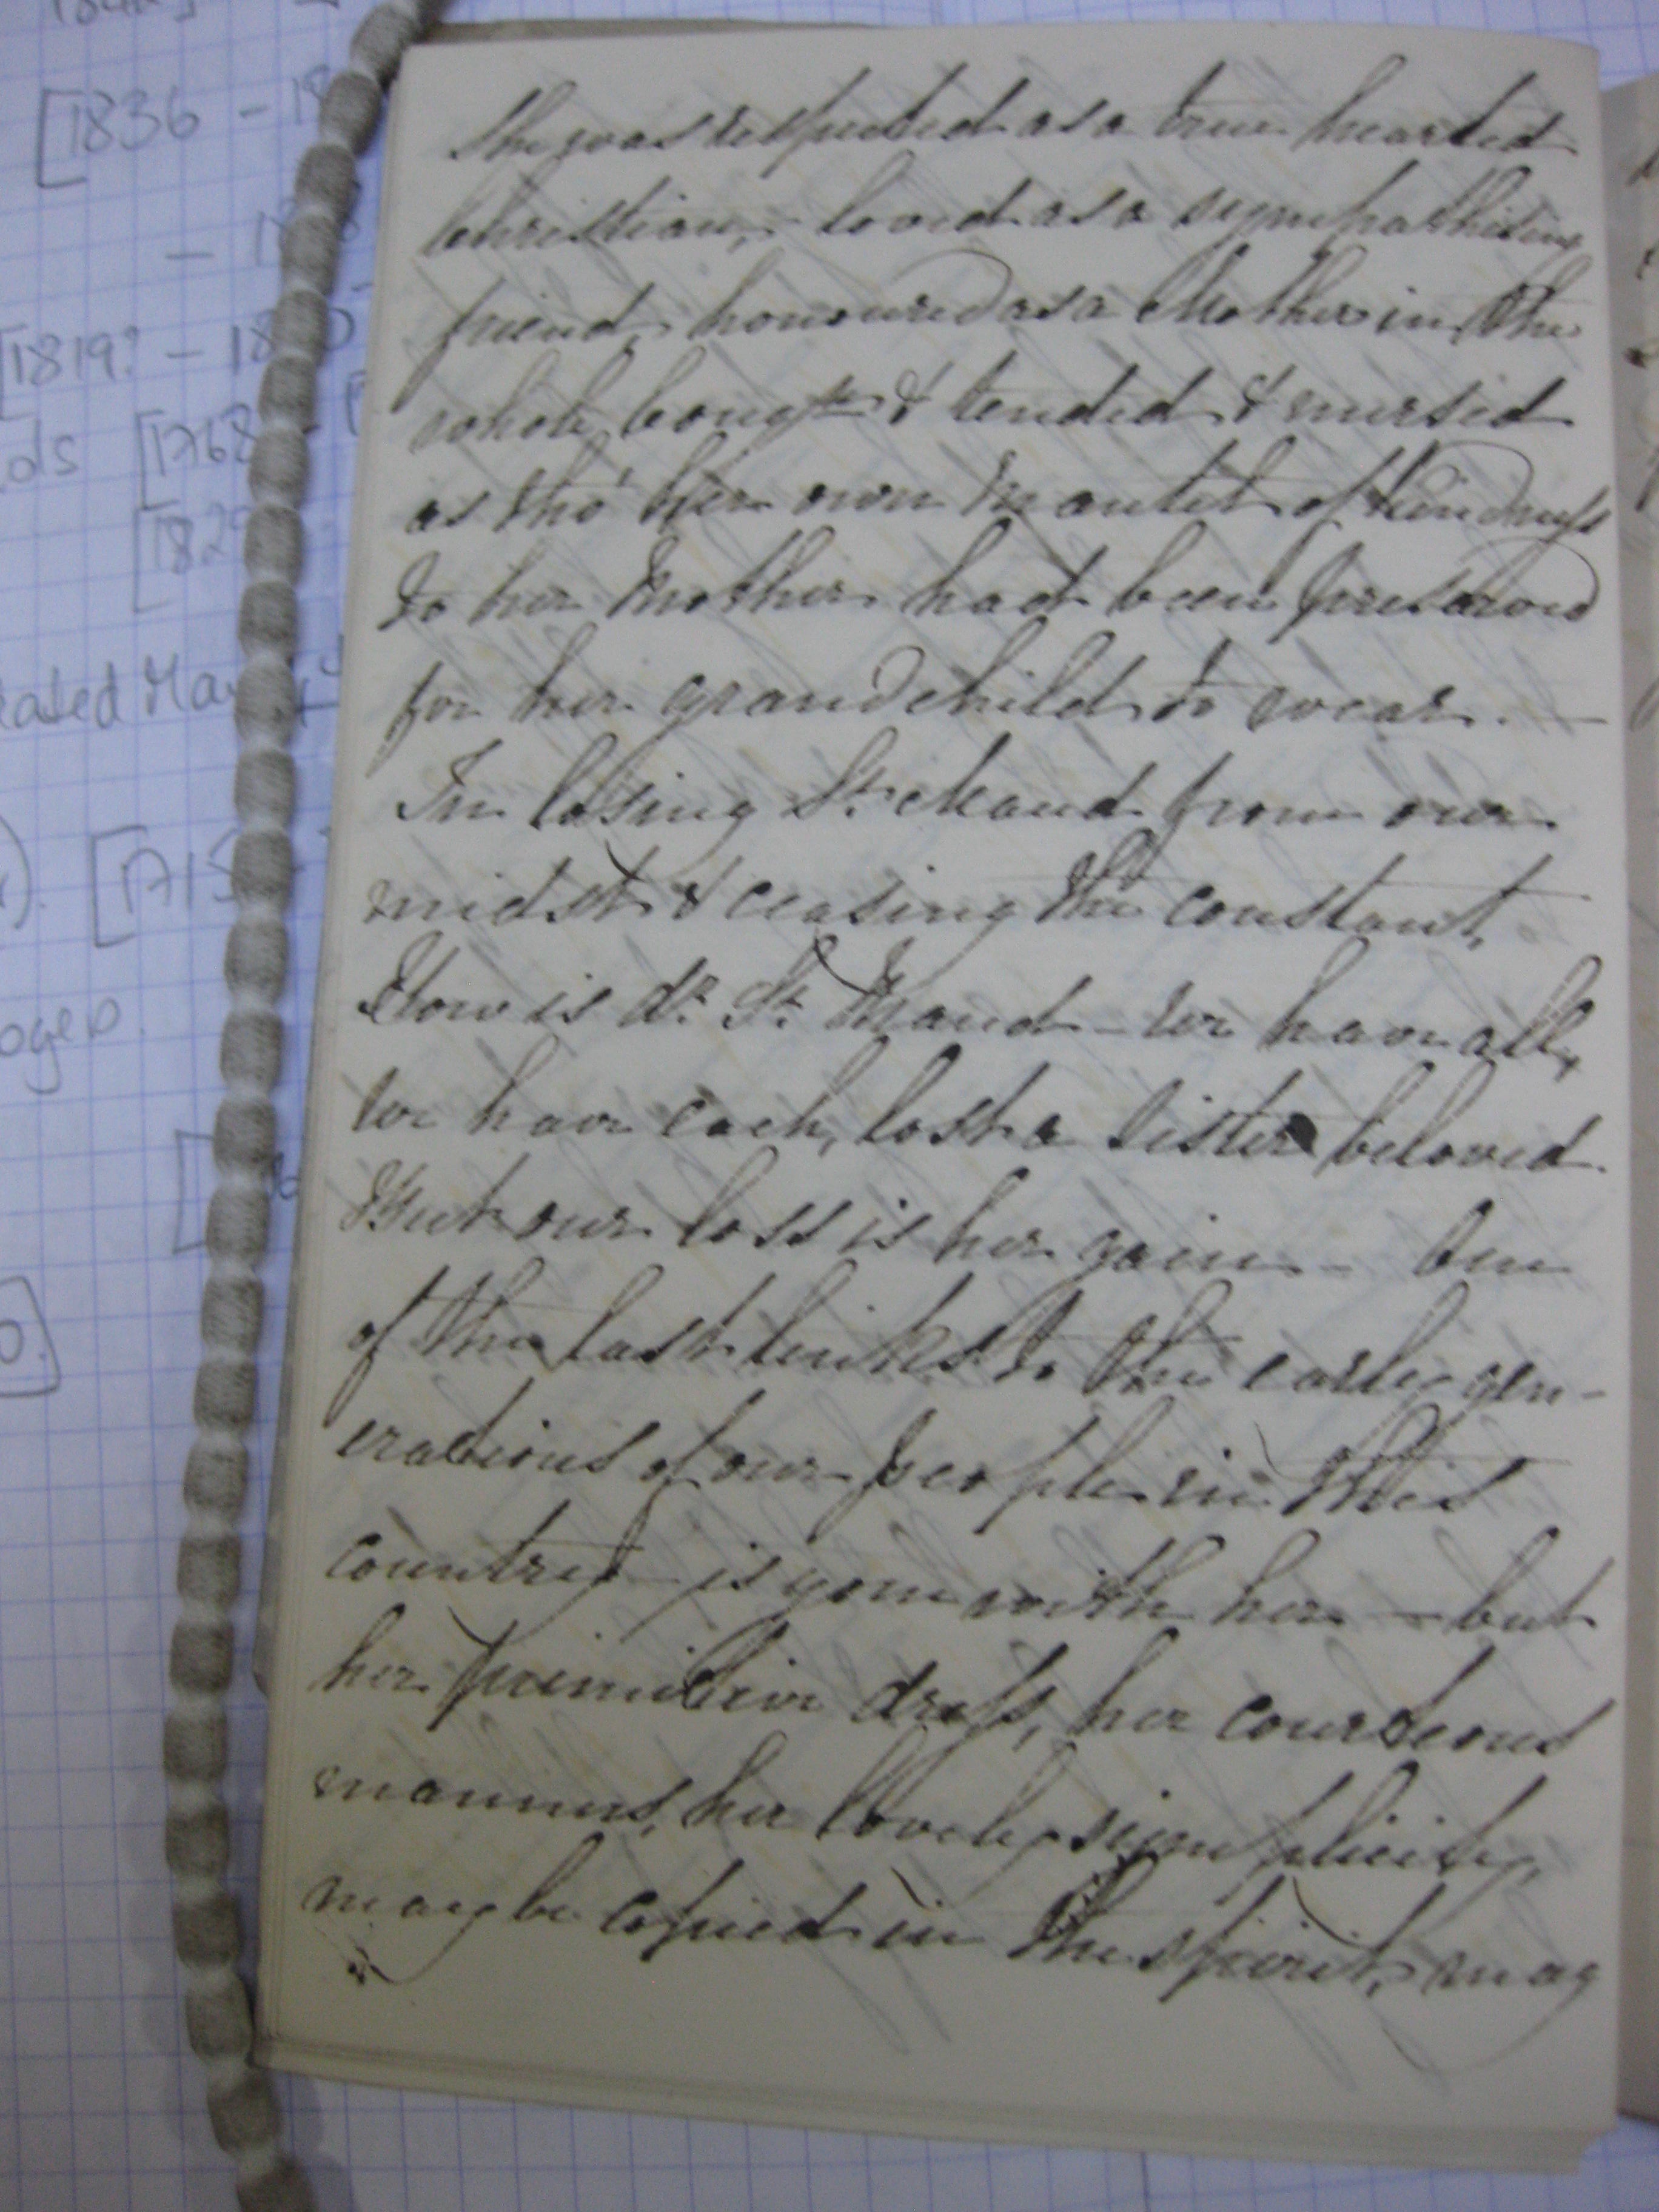 [1836 - 18
[1819? - 18
ds [1768
[182
[1715
She was respected as a true hearted
Christian, - loved as a sympathising
friend, honoured as a Mother in the
whole Congn & tended & nursed
as tho' her own mantel of kindness
to her Mother had been preserved
for her grandchild to wear. —
In losing Sr. Maud from our
midst & ceasing the constant,
How is dr. Sr. Maud - we have all,
we have each, lost a Sister beloved.
But our loss is her gain - One
of the last links to the early gen-
erations of our people in this
country - is gone with her - but
her primitive dress, her courteous
manners, her lovely simplicity,
may be copied in the spirit, may